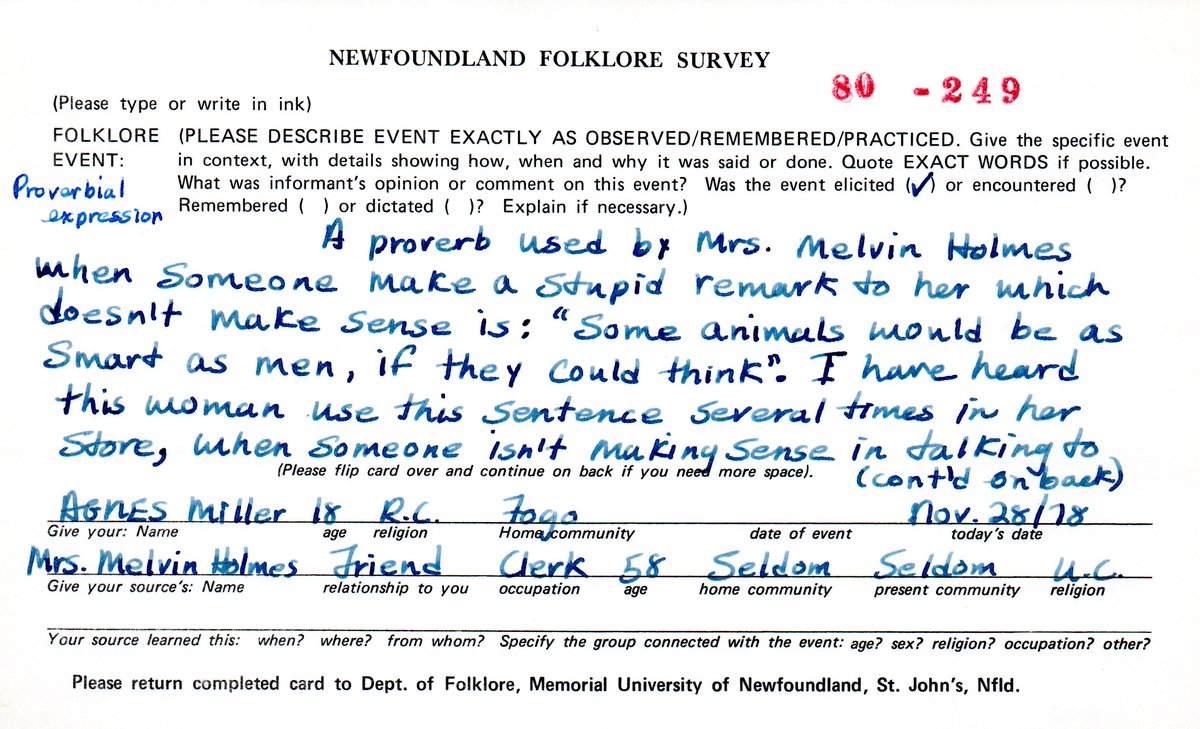 NEWFOUNDLAND FOLKLORE SURVEY
80 - 249
(Please type or write in ink)
FOLKLORE (PLEASE DESCRIBE EVENT EXACTLY AS OBSERVED/REMEMBERED/PRACTICED. Give the specific event
EVENT: in context, with details showing how, when and why it was said or done. Quote EXACT WORDS if possible.
What was informant's opinion or comment on this event? Was the event elicited (✓) or encountered ( )?
Remembered ( ) or dictated ( )? Explain if necessary.)
Proverbial
expression
A proverb used by Mrs. Melvin Holmes
when someone make a stupid remark to her which
doesn't make sense is: "Some animals would be as
smart as men, if they could think". I have heard
this woman use this sentence several times in her
store, when someone isn't making sense in talking to
(Please flip card over and continue on back if you need more space).
(cont'd on back)
AGNES Miller 18 R.C. Fogo Nov. 28/78
Give your: Name age religion Home community date of event today's date
Mrs. Melvin Holmes Friend Clerk 58 Seldom Seldom U.C.
Give your source's: Name relationship to you occupation age home community present community religion
Your source learned this: when? where? from whom? Specify the group connected with the event: age? sex? religion? occupation? other?
Please return completed card to Dept. of Folklore, Memorial University of Newfoundland, St. John's, Nfld.